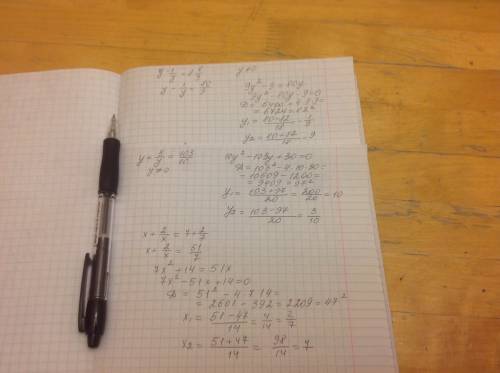 y - 1/y = 8 8/9    y ≠ 0
y - 1/y = 80/9    9y² - 9 = 80y
9y² - 80y - 9 = 0
D = 6400 + 4·9·9 =
= 6724 = 82²
y₁ = (80-82)/18 = -1/9
y₂ = (80+82)/18 = 9
y + 3/y = 103/10    10y² - 103y + 30 = 0
y ≠ 0    D = 103² - 4·10·30 =
10609 - 1200 =
= 9409 = 97²
y₁ = (103+97)/20 = 200/20 = 10
y₂ = (103-97)/20 = 3/10
x + 2/x = 7 + 2/7
x + 2/x = 51/7
7x² + 14 = 51x
7x² - 51x + 14 = 0
D = 51² - 4·7·14 =
= 2601 - 392 = 2209 = 47²
x₁ = (51-47)/14 = 4/14 = 2/7
x₂ = (51+47)/14 = 98/14 = 7